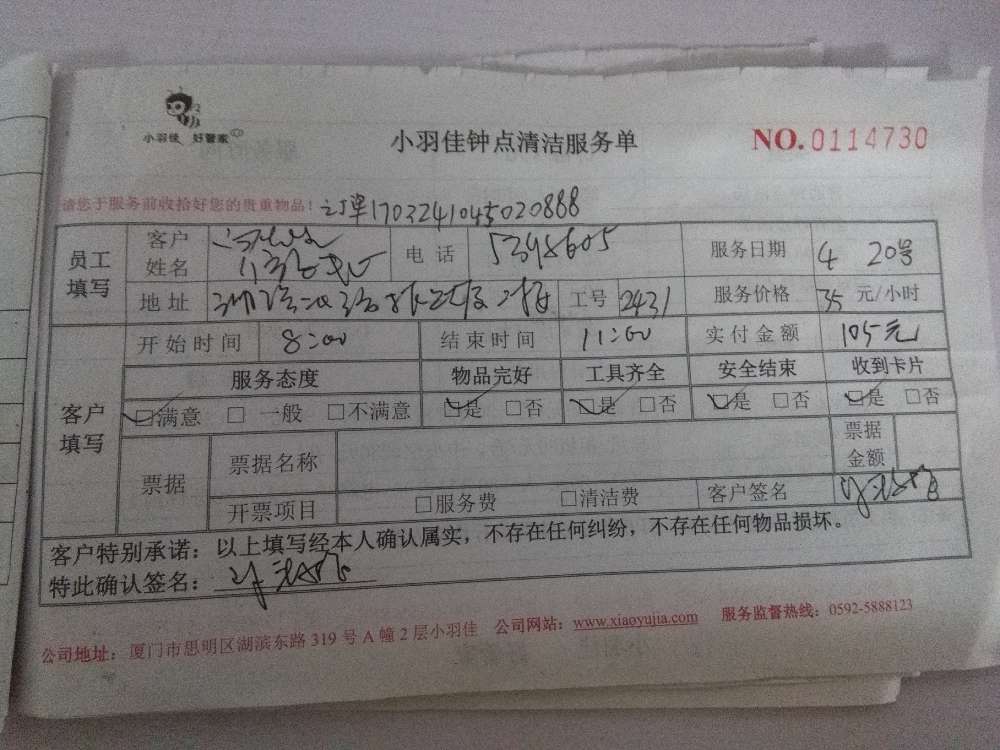 小羽佳 好管家
小羽佳钟点清洁服务单
NO.0114730
请您于服务前收拾好您的贵重物品! 订单1703241045020888
员工填写
客户姓名
电话 5398605
服务日期 4 20号
地址
工号 2431
服务价格 35 元/小时
客户填写
开始时间 8:00 结束时间 11:00 实付金额 105元
服务态度 物品完好 工具齐全 安全结束 收到卡片
☑满意 □ 一般 □不满意 ☑是 □否 ☑是 □否 ☑是 □否 ☑是 □否
票据
票据名称
票据金额
开票项目 □服务费 □清洁费 客户签名
客户特别承诺：以上填写经本人确认属实，不存在任何纠纷，不存在任何物品损坏。
特此确认签名：
公司地址：厦门市思明区湖滨东路 319 号 A 幢 2 层小羽佳 公司网站：www.xiaoyujia.com 服务监督热线：0592-5888123